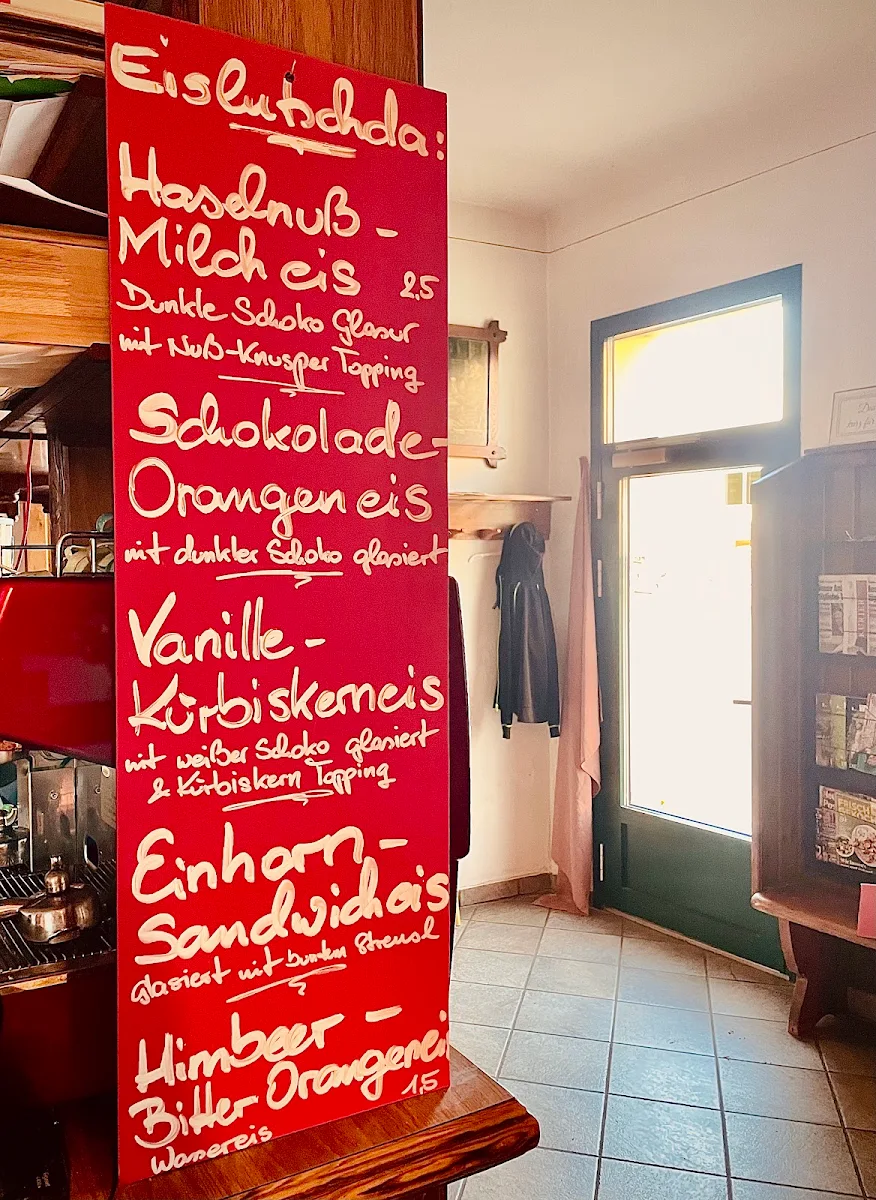 Eislutschda:
Haselnuß -
Milch eis 2,5
Dunkle Schoko Glasur
mit Nuß-Knusper Topping
Schokolade-
Orangen eis
mit dunkler Schoko glasiert
Vanille -
Kürbiskerneis
mit weißer Schoko glasiert
& Kürbiskern Topping
Einhorn -
Sandwicheis
glasiert mit bunten Streusl
Himbeer -
Bitter Orangenei
1,5
Wassereis
FRISCH